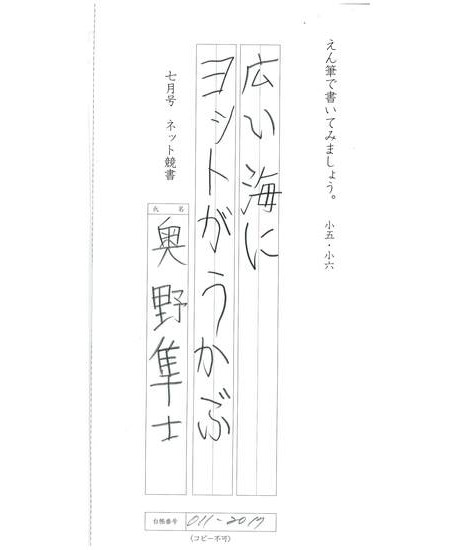 えん筆で書いてみましょう。 小五・小六
広い海に
ヨットがうかぶ
七月号 ネット競書
氏名
奥野隼士
台帳番号 011-2017
(コピー不可)